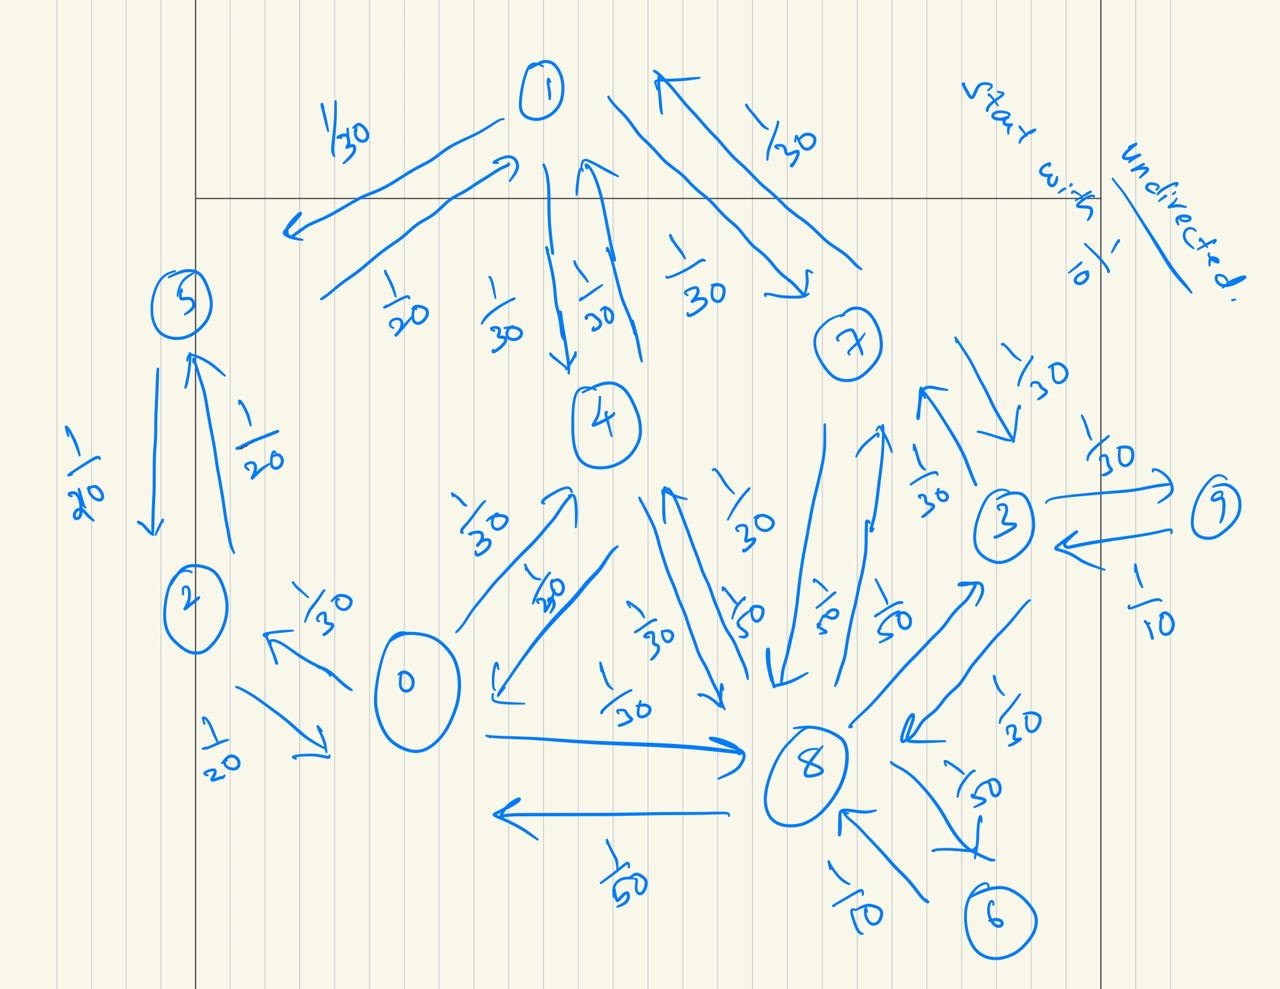 1
1/30
1/30
start
with
1/10
undirected.
1/20
1/30
1/30
1/30
5
7
1/30
4
1/20
1/20
1/30
1/30
1/30
1/30
3
9
2
1/30
1/30
1/50
1/30
1/50
1/10
0
1/30
1/30
1/20
8
1/50
1/50
1/10
6